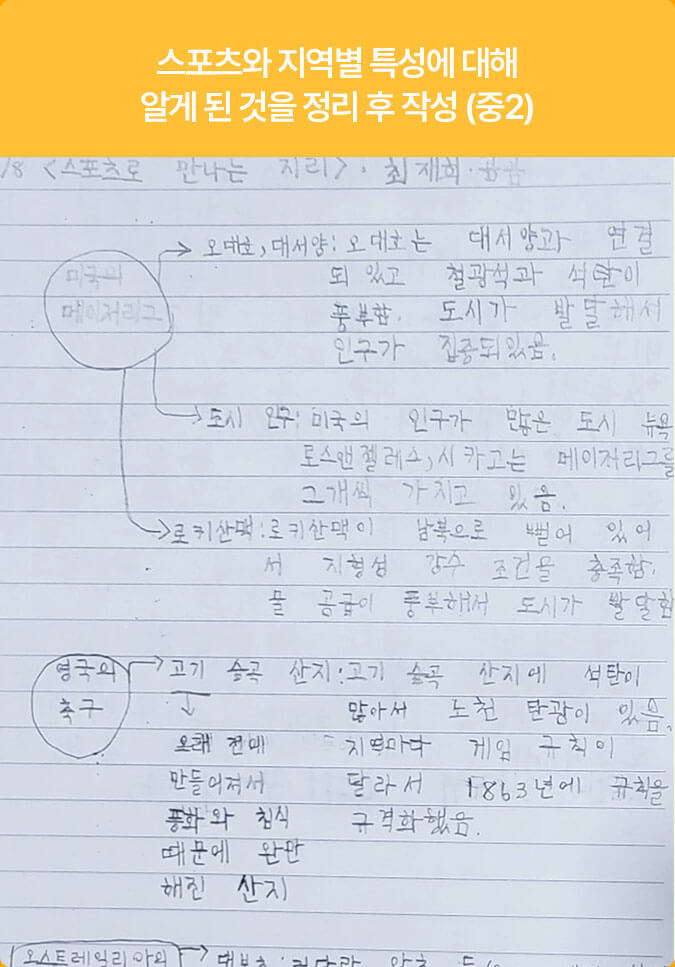 스포츠와 지역별 특성에 대해
알게 된 것을 정리 후 작성 (중2)
/8 <스포츠로 만나는 지리>. 최재희.
미국의
메이저리그
오대호, 대서양: 오대호는 대서양과 연결
되 있고 철광석과 석탄이
풍부함. 도시가 발달해서
인구가 집중되있음.
도시 인구: 미국의 인구가 많은 도시 뉴욕
로스앤젤레스, 시카고는 메이저리그를
그개씩 가지고 있음.
로키산맥: 로키산맥이 남북으로 뻗어 있어
서 지형성 강수 조건을 충족함.
물 공급이 풍부해서 도시가 발달함
영국의
축구
고기 습곡 산지: 고기 습곡 산지에 석탄이
많아서 노천 탄광이 있음.
↓
오래 전에
만들어져서
풍화와 침식
때문에 완만
해진 산지
지역마다 게임 규칙이
달라서 1863년에 규칙을
규격화했음.
오스트레일리아의